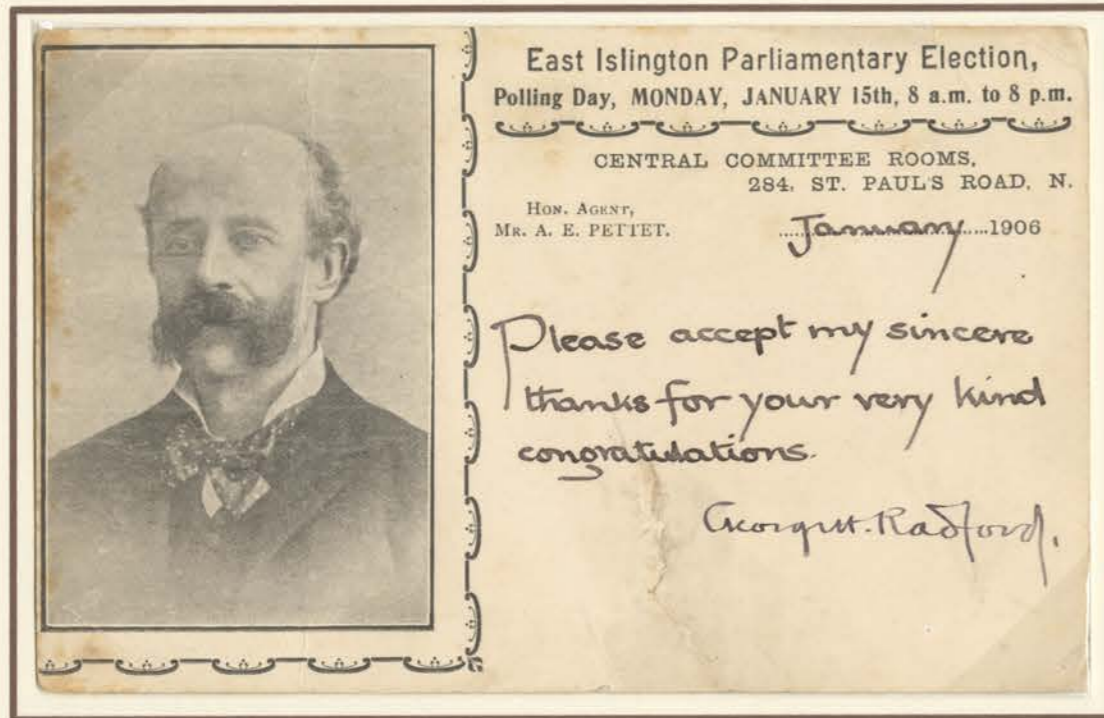 East Islington Parliamentary Election,
Polling Day, MONDAY, JANUARY 15th, 8 a.m. to 8 p.m.
CENTRAL COMMITTEE ROOMS,
284, ST. PAUL'S ROAD, N.
HON. AGENT,
MR. A. E. PETTET.
January 1906
Please accept my sincere
thanks for your very kind
congratulations.
George H. Radford.